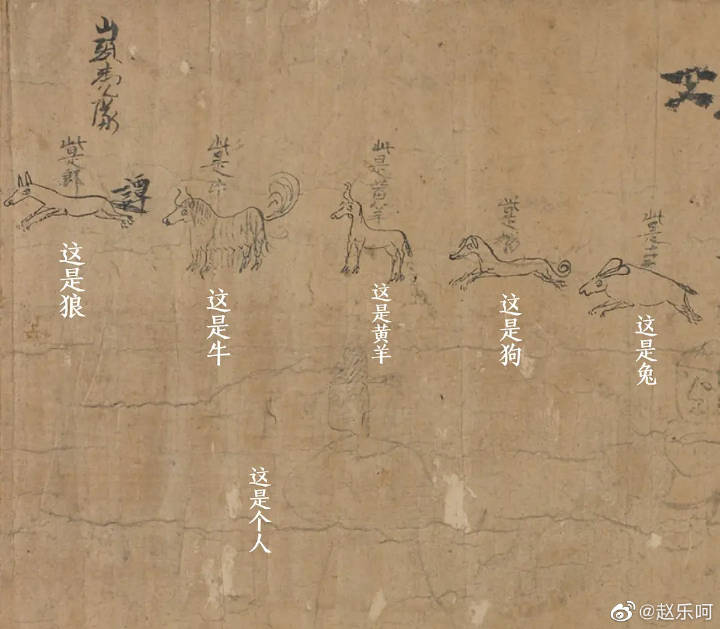 此是狼
此是牛
此是黄羊
此是狗
此是兔
譚
这是狼
这是牛
这是黄羊
这是狗
这是兔
这是个人
@赵乐呵